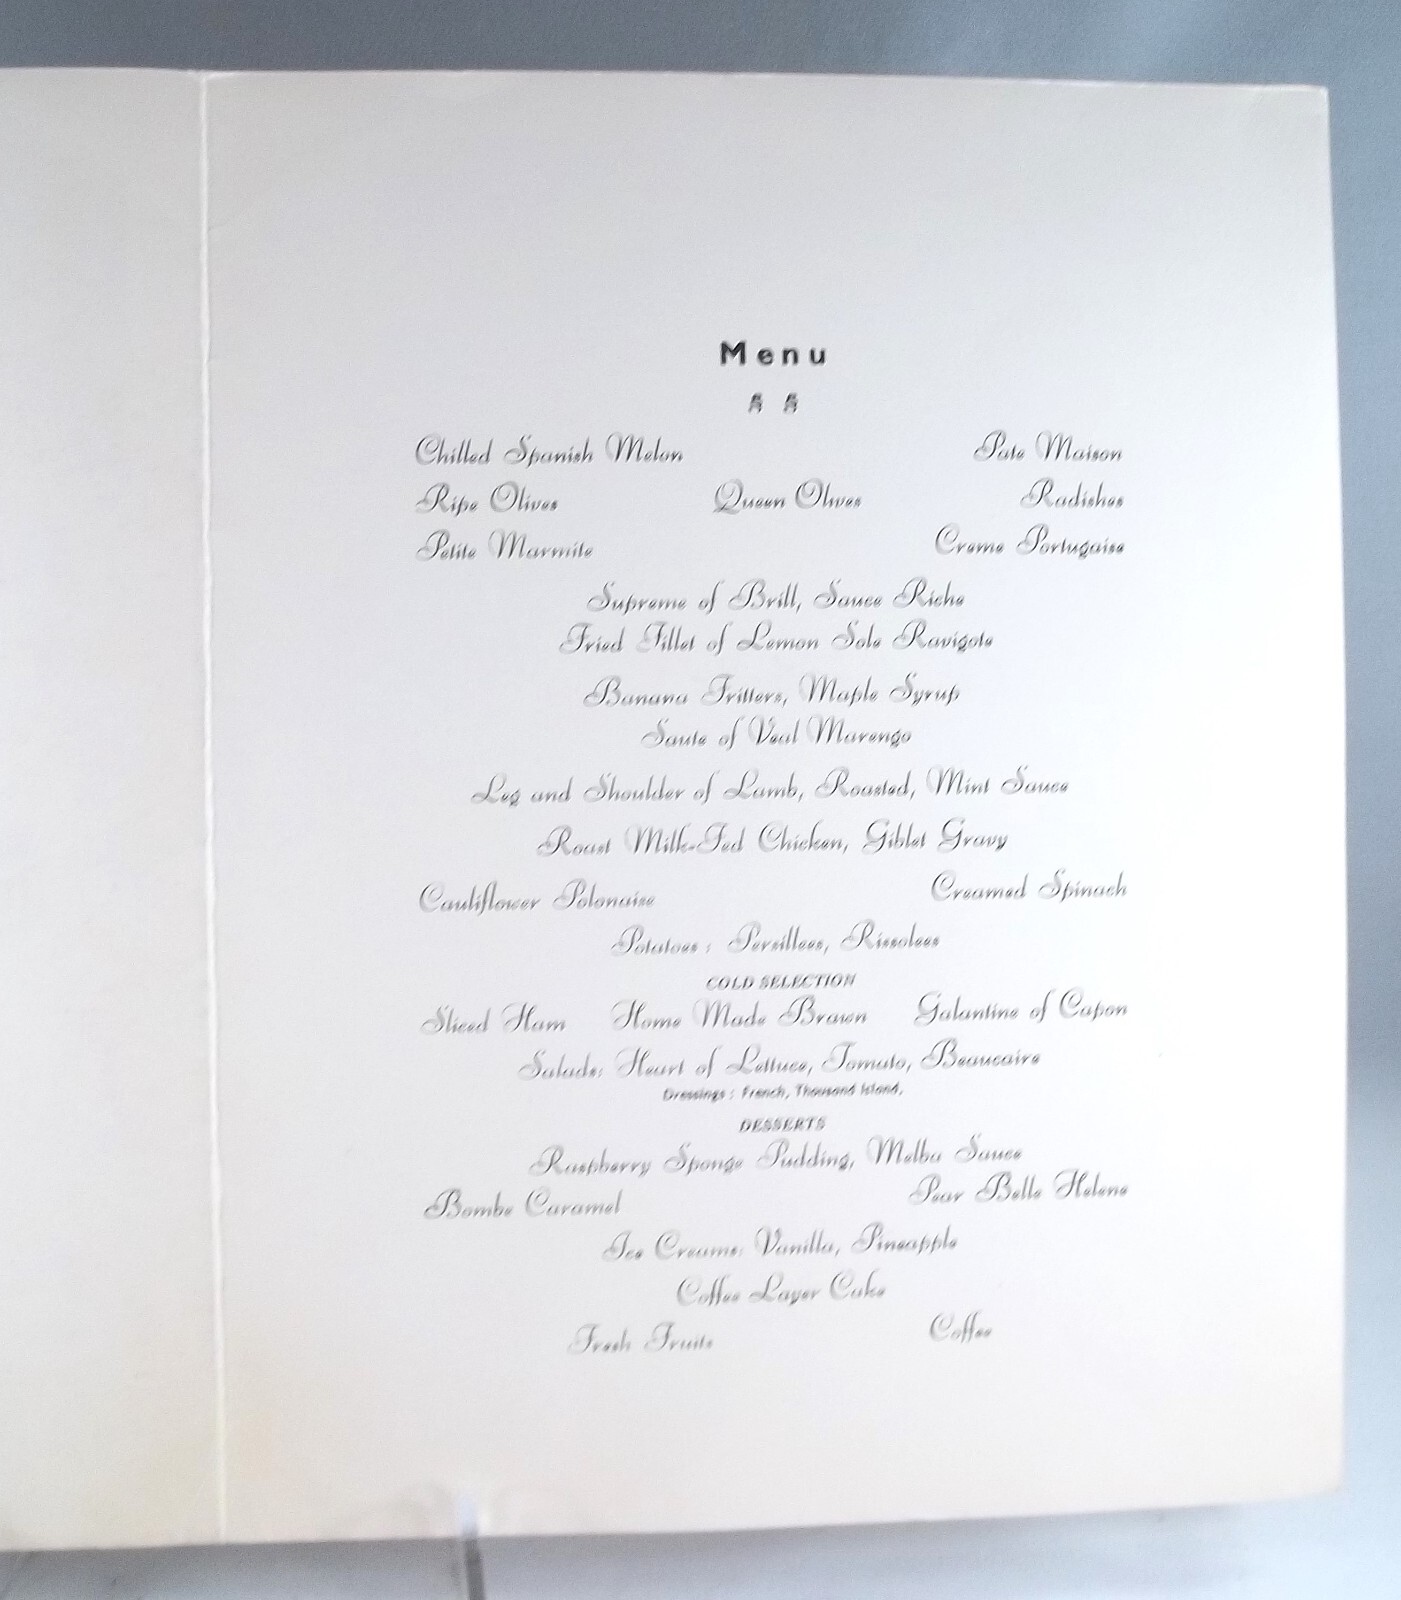 Menu
Chilled Spanish Melon Pate Maison
Ripe Olives Queen Olives Radishes
Petite Marmite Creme Portugaise
Supreme of Brill, Sauce Riche
Fried Fillet of Lemon Sole Ravigote
Banana Fritters, Maple Syrup
Saute of Veal Marengo
Leg and Shoulder of Lamb, Roasted, Mint Sauce
Roast Milk-Fed Chicken, Giblet Gravy
Cauliflower Polonaise Creamed Spinach
Potatoes: Persillees, Rissolees
COLD SELECTION
Sliced Ham Home Made Brawn Galantine of Capon
Salads: Heart of Lettuce, Tomato, Beaucaire
Dressings: French, Thousand Island.
DESSERTS
Raspberry Sponge Pudding, Melba Sauce
Bombe Caramel Pear Belle Helene
Ice Creams: Vanilla, Pineapple
Coffee Layer Cake
Fresh Fruits Coffee